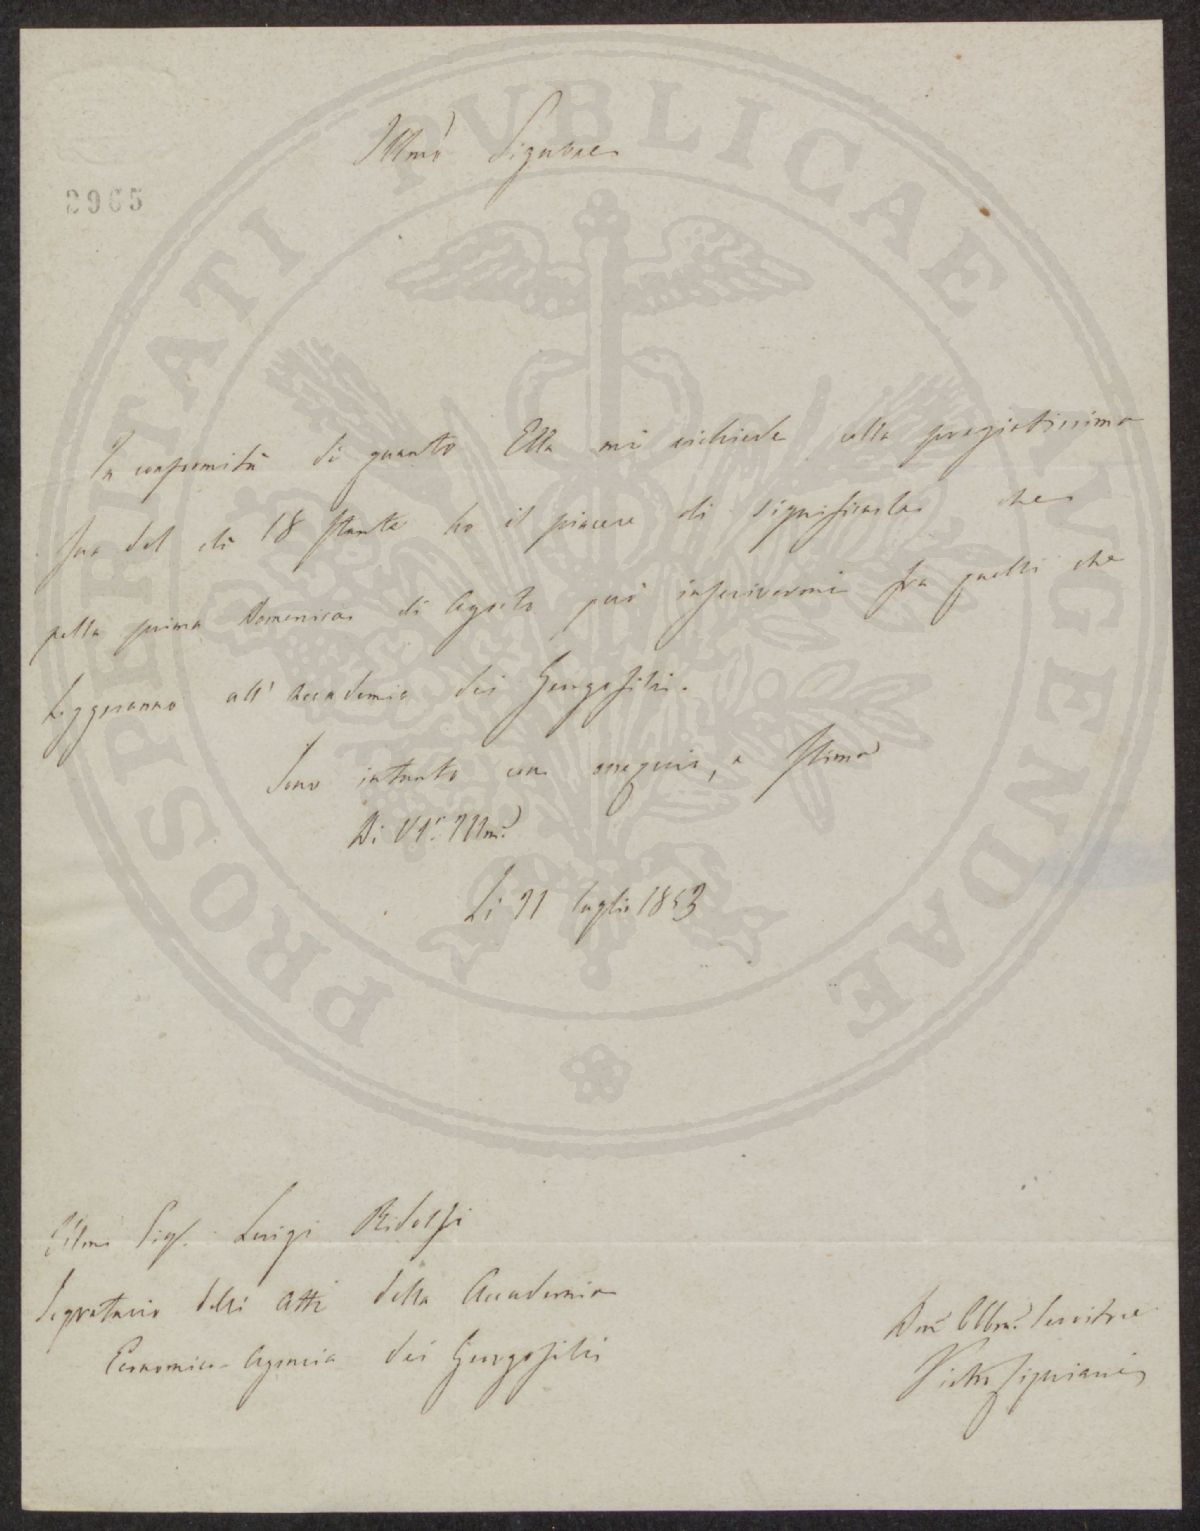 Illmo Signore
2965
In conformità di quanto Ella mi richiede colla pregiatissima
sua del dì 18 stante ho il piacere di significarla che
nella prima Domenica di Agosto può inscrivermi fra quelli che
Leggeranno all' Accademia dei Georgofili.
Sono intanto con ossequio, e stima
Di VS. Illma
Li 21 luglio 1853
Illmo Sigr. Luigi Ridolfi
Segretario delli Atti della Accademia
Economico Agraria dei Georgofili
Devo Obbmo Servitore
Cipriani
PROSPERITATI PVBLICAE AVGENDAE